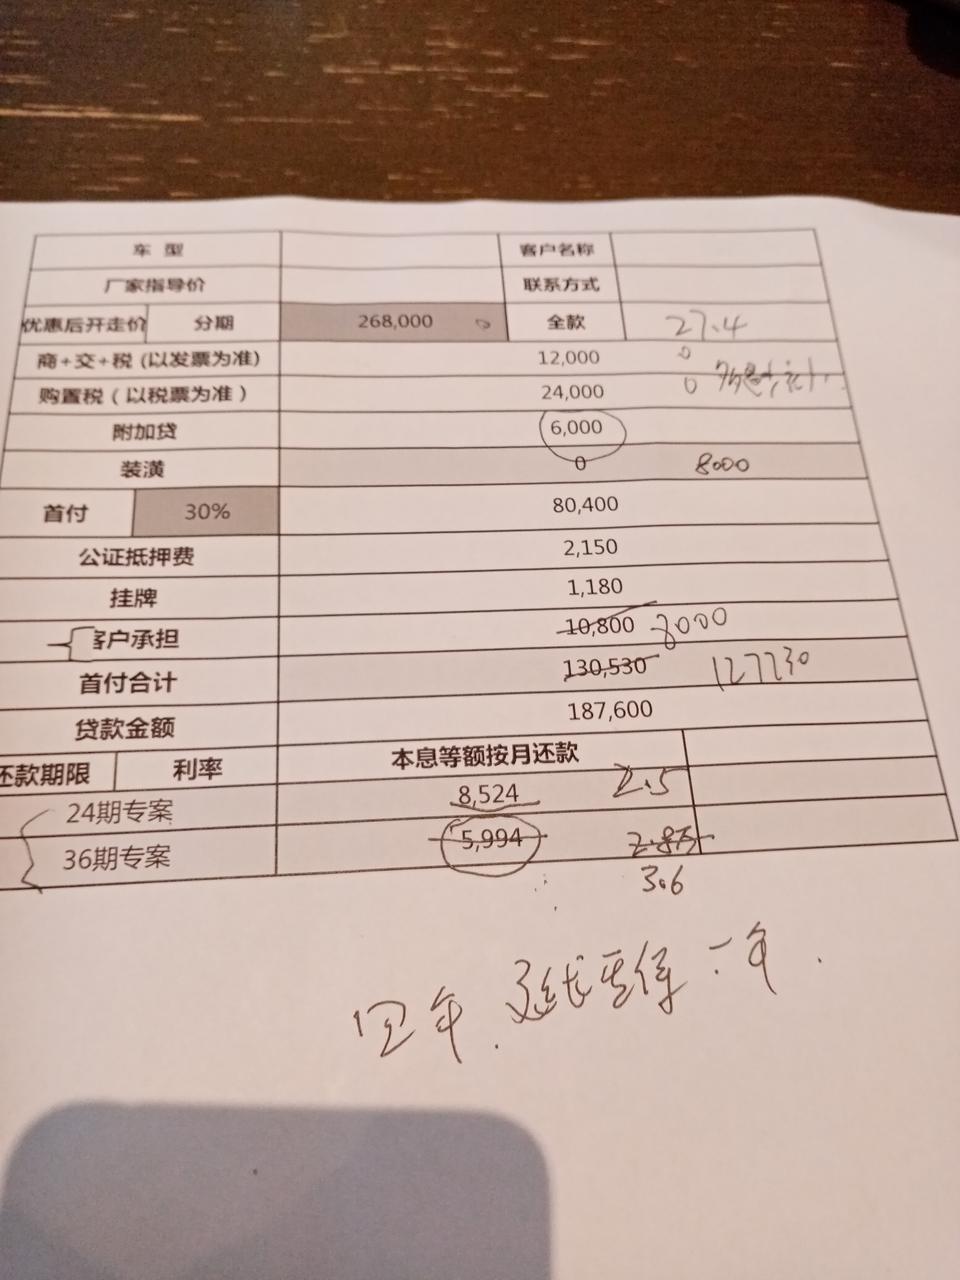 车 型 客户名称
厂家指导价 联系方式
优惠后开走价 分期 268,000 全款 27.4
商+交+税 (以发票为准) 12,000 0
购置税 ( 以税票为准 ) 24,000 0
附加贷 6,000
装潢 0 8000
首付 30% 80,400
公证抵押费 2,150
挂牌 1,180
客户承担 10,800 8000
首付合计 130,530 127730
贷款金额 187,600
还款期限 利率 本息等额按月还款
24期专案 8,524 2.5
36期专案 5,994 2.8万
3.6
四年. 延长质保一年.